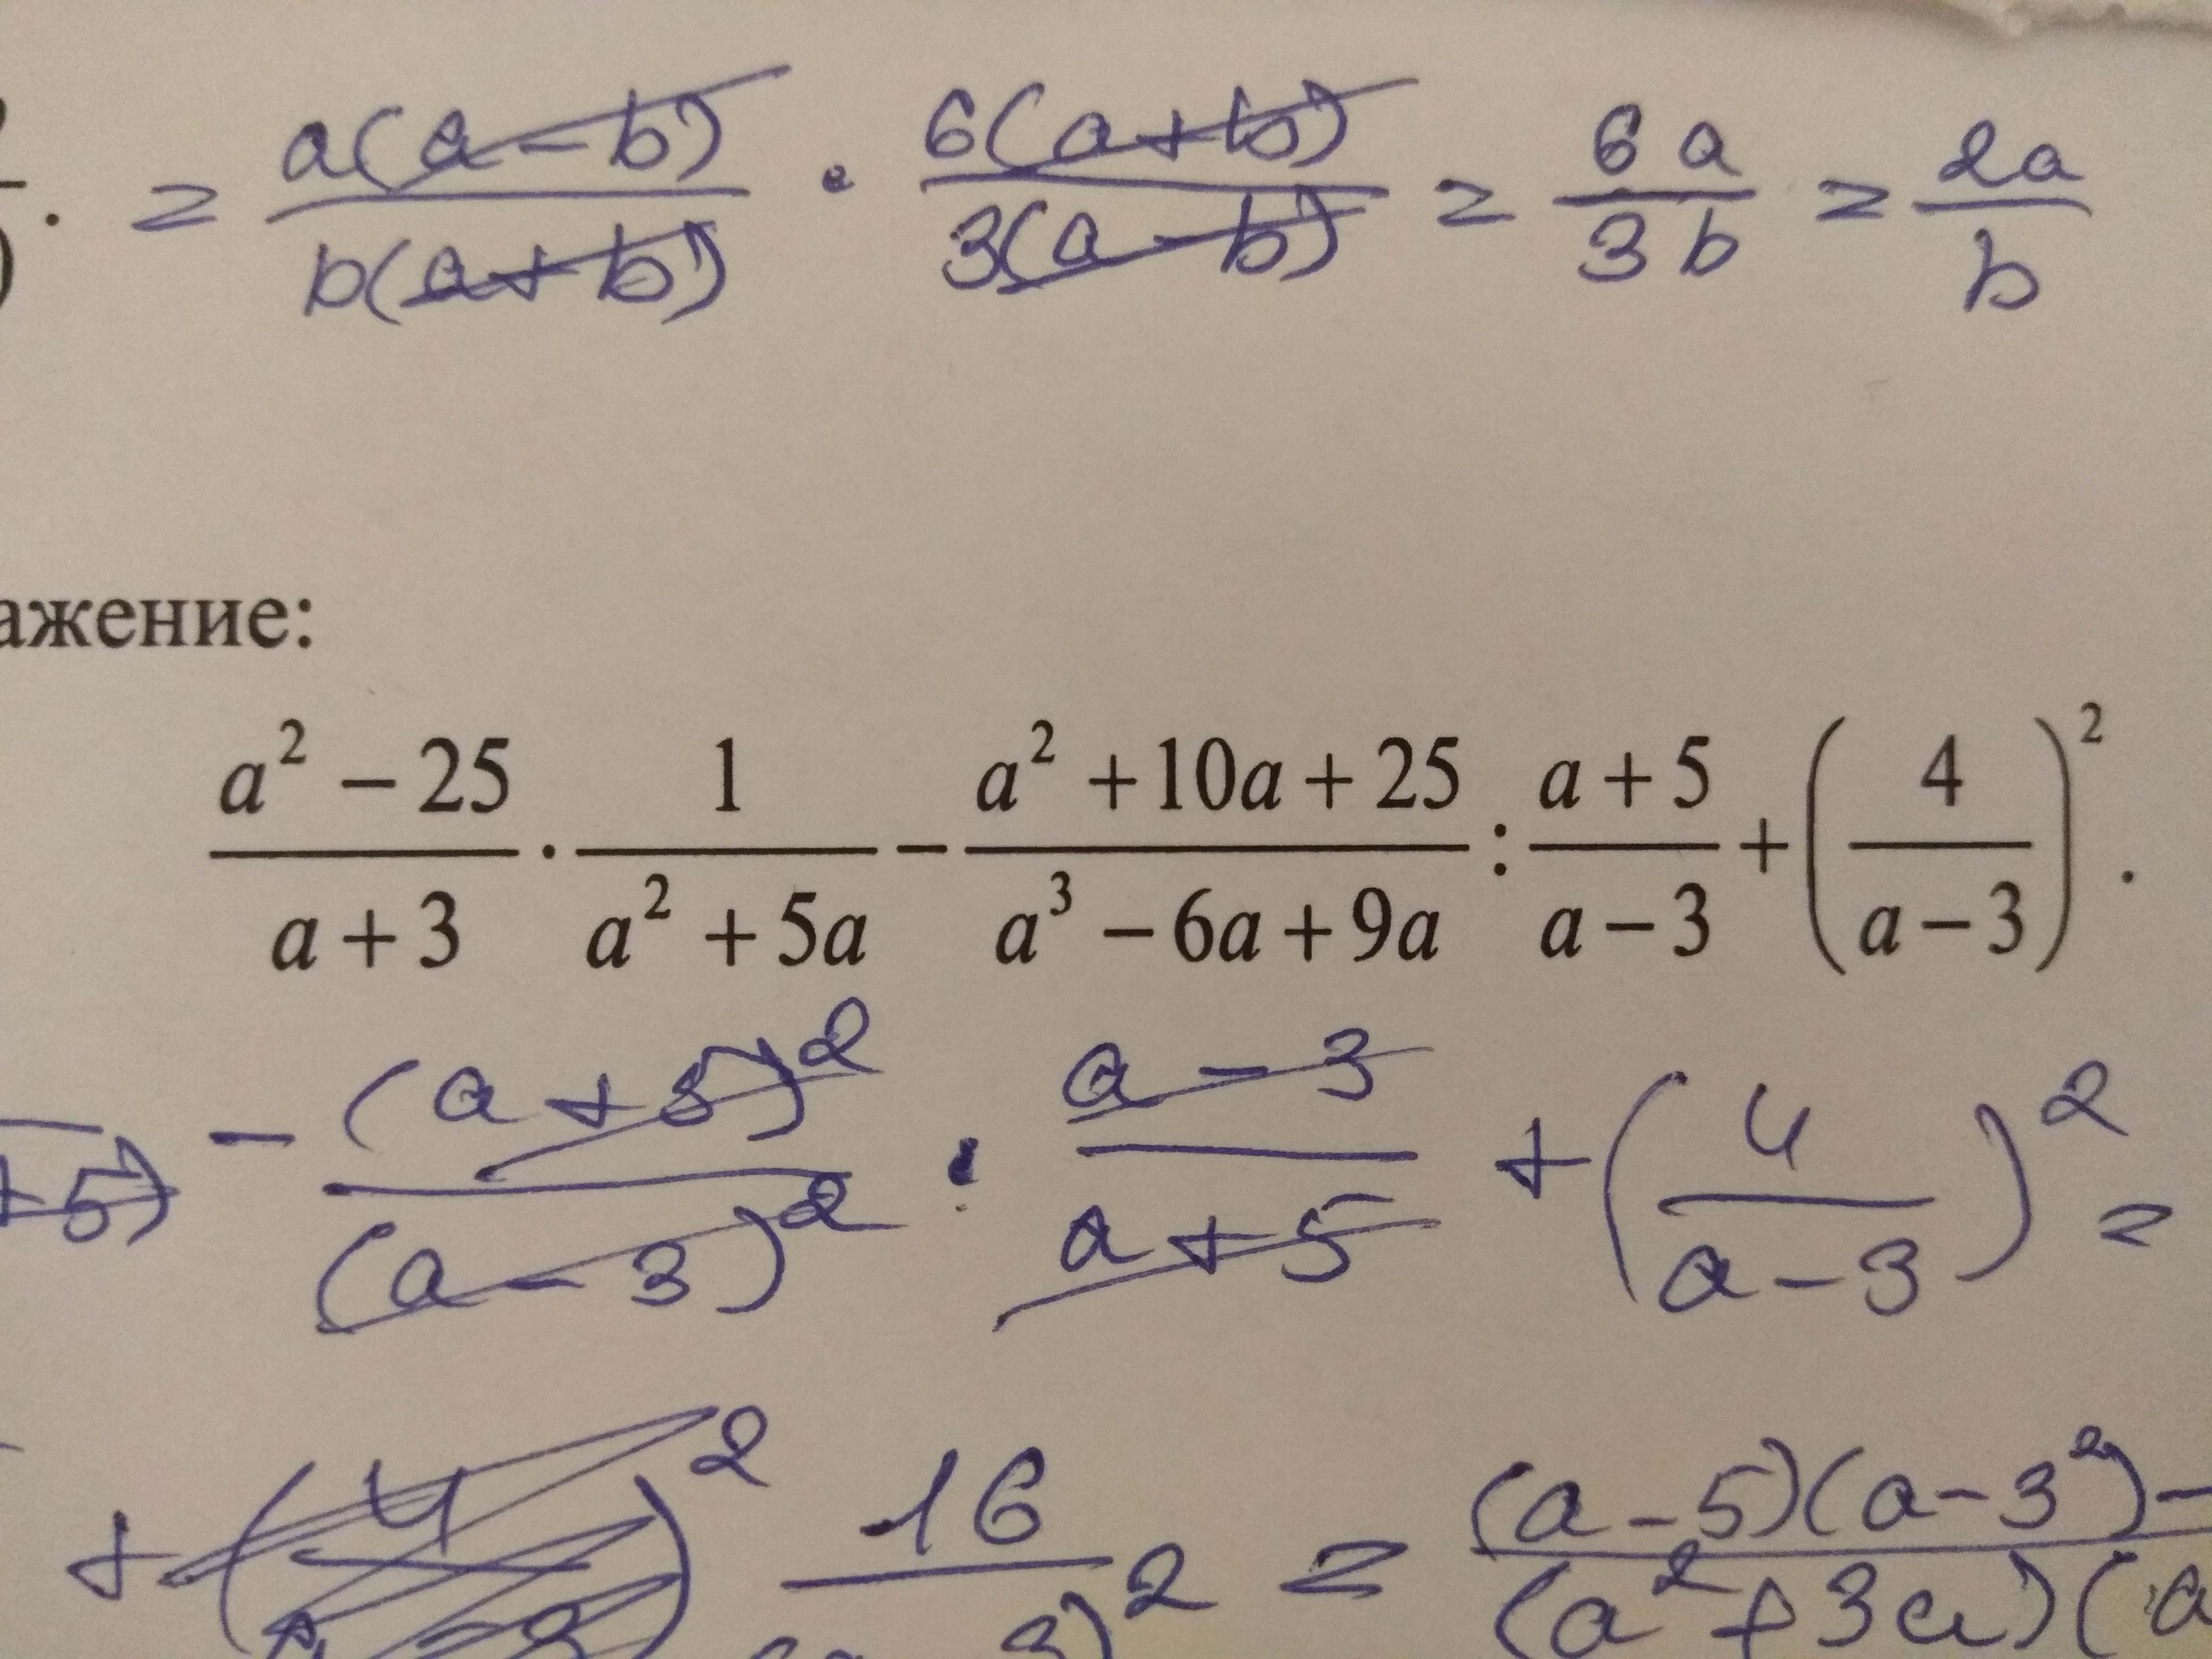 . = a(a-b)/b(a+b) · 6(a+b)/3(a-b) = 6a/3b = 2a/b
ажение:
a² − 25/a + 3 · 1/a² + 5a − a² + 10a + 25/a³ − 6a + 9a : a + 5/a − 3 + (4/a − 3)².
+5) − (a+5)²/(a-3)² · a-3/a+5 + (4/a-3)² =
+ (4/)² 16/3)² = (a-5)(a-3²)-/(a²+3a)(a